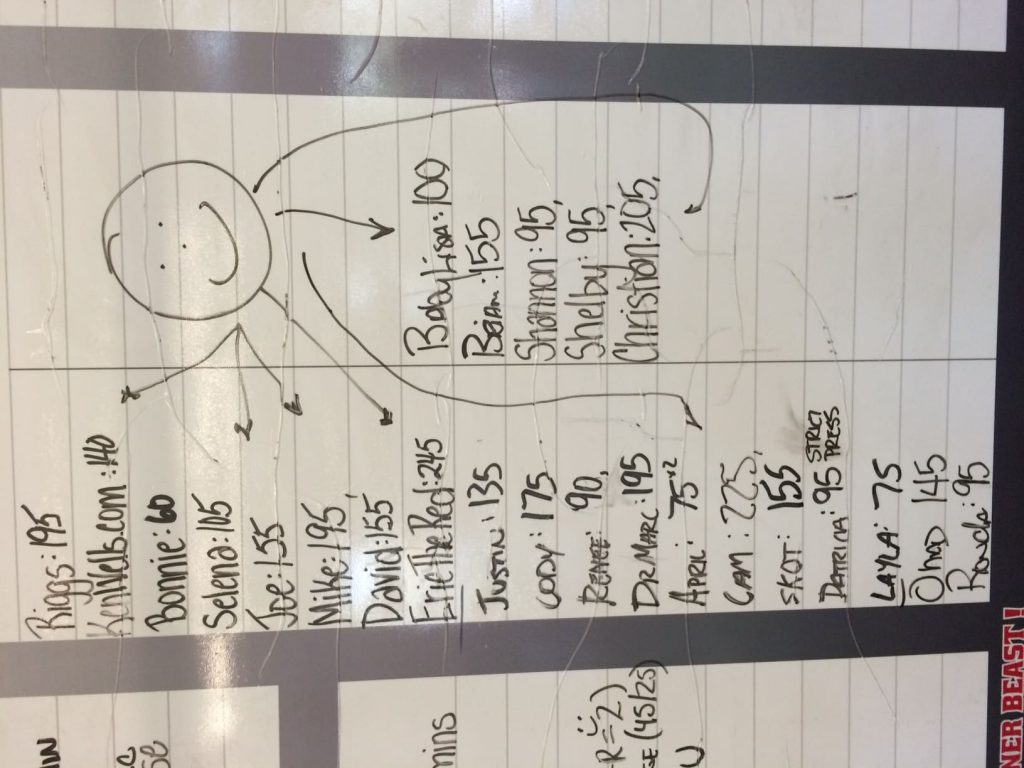 Riggs: 195
KajVelts.com: 140
Bonnie: 60
Selena: 105
Joe: 155
Mike: 195,
David: 155,
EricTheRed: 245
JUSTIN: 135
CODY: 175
RENEE: 90,
DR.MARC: 195
APRIL: 75 x2
CAM: 225,
SKOT: 155
PATRINA: 95 STRICT PRESS
LAYLA: 75
OHAD 145
RONDA: 95
BabyLisa: 100
Brian: 155
Shannon: 95,
Shelby: 95,
Christian: 205,
mins
(45/25)
NER BEAST!